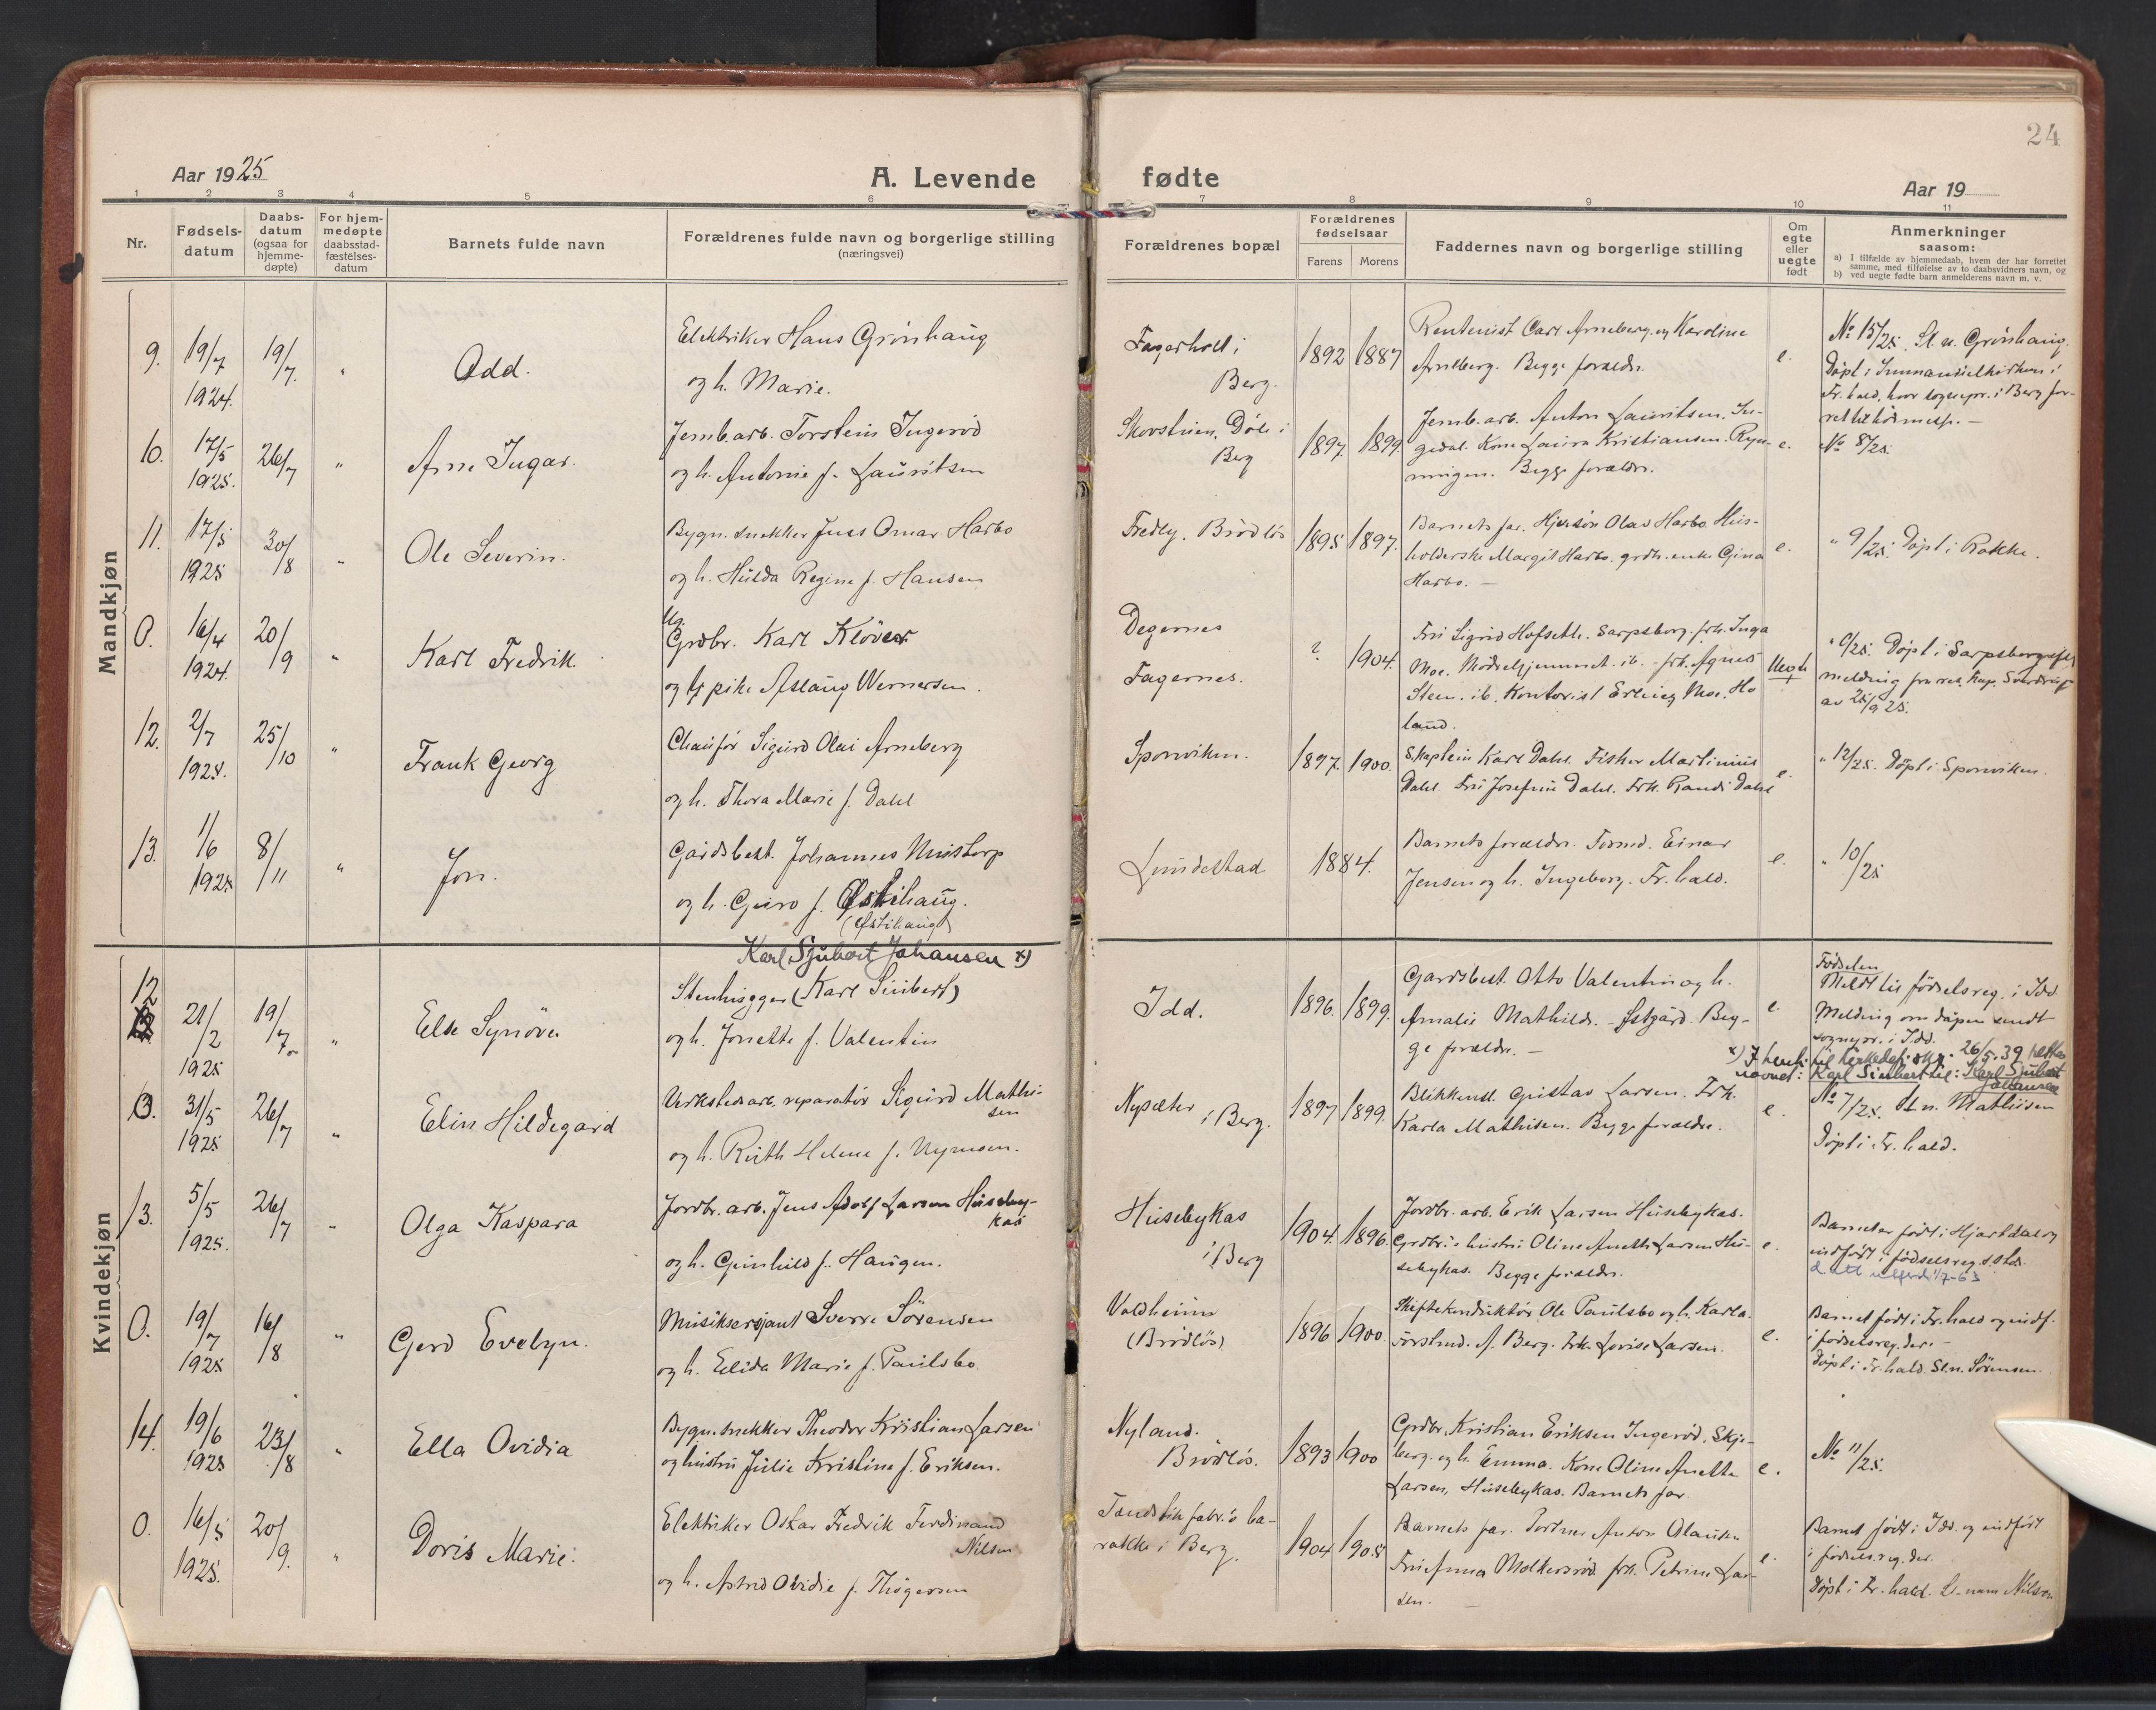 24
Aar 1925
A. Levende fødte
Aar 19
1 2 3 4 5 6 7 8 9 10 11
Nr.
Fødsels-
datum
Daabs-
datum
(ogsaa for
hjemme-
døpte)
For hjem-
medøpte
daabsstad-
fæstelses-
datum
Barnets fulde navn
Forældrenes fulde navn og borgerlige stilling
(næringsvei)
Forældrenes bopæl
Forældrenes
fødselsaar
Farens Morens
Faddernes navn og borgerlige stilling
Om
egte
eller
uegte
født
Anmerkninger
saasom:
a) I tilfælde av hjemmedaab, hvem der har forrettet
samme, med tilføielse av to daabsvidners navn, og
b) ved uegte fødte barn anmelderens navn m. v.
Mandkjøn
9. 19/7 1924. 19/7. "
Odd.
Elektriker Hans Grönhaug
og h. Marie.
Fagerholt i
Berg.
1892 1887
Rentenist Carl Arneberg og Karoline
Arneberg. Begge foreldre.
e.
No 15/25. Sl. n. Grönhaug.
Döpt i Immanuelkirken i
Fr.hald, hvor sognepr. i Berg for-
10. 17/5 1925. 26/7 "
Arne Ingar.
Jernb.arb. Torstein Ingeröd
og h. Antonie f. Lauritsen
Berg
1897 1899.
Jernb. arb. Anton Lauritsen. In-
gedal. Kone Laura Kristiansen. Ryn-
ningen. Begge foreldre.
e.
No 8/25.
11. 17/5 1925 30/8 "
Ole Severin.
Bygn. snekker Juss Omar Harbo
og h. Hulda Regine f. Hansen
Fredly. Brödlös
1895 1897.
Barnets far. Olav Harbo. Hus-
holderske Margit Harbo. grdb. enke Gina
Harbo. —
e.
" 9/25. Döpt i Rokke.
0. 16/4 1924. 20/9 "
Karl Fredrik.
Ug.
Grdbr. Karl Klöver
og pike Aslaug Wernersen.
Degernes
Fagernes.
? 1904.
Fru Sigrid Hofseth. Sarpsborg. frk. Inga
Moe. Mödrehjemmet. ib. frk. Agnes
Sten. ib. Kontorist Erling Moe. Ho
land.
Uegte
" 0/25. Döpt i Sarpsborg efter
melding fra res. kap. Sverdrup
av 25/9 25.
12. 2/7 1925. 25/10 "
Frank Georg
Chauför Sigurd Olai Arneberg
og h. Thora Marie f. Dahl
Sponviken.
1897. 1900.
Skaptein Karl Dahl. Fisker Martinius
Dahl. Fru Josefine Dahl. Frk. Randi Dahl
e.
" 12/25. Döpt i Sponviken.
13. 1/6 1925 8/11 "
Jon.
Gårdsbest. Johannes Mustorp
og h. Guro f. Østihaug.
(Østihaug)
Lundestad
1884.
Barnets foreldre. Formd. Einar
Jensen og h. Ingeborg. Fr.hald.
e.
" 10/25
Kvindekjøn
Karl Sjubert Johansen x)
12 21/2 1925 19/7. "
Else Synöve
Stenhugger (Karl Sinbert)
og h. Jonette f. Valentin
Idd.
1896. 1899.
Gardsbest. Otto Valentin og h.
Amalie Mathilde. Beg-
ge foreldre. —
e.
Födselen
Meldt til födselsreg. i Idd.
Melding om dåpen sendt
sognepr. i Idd.
x) I henh. til kirkedep. skr. 26/5.39 rettes
navnet: Karl Sinbert til: Karl Sjubert
Johansen
0. 31/5 1925 26/7 "
Elin Hildegard
Verkstedsarb. reparatör Sigurd Mathi-
sen
og h. Ruth Helene f. Nymoen.
Nysæter
i Berg.
1897 1899.
Blikkensl. Gustav Larsen. Frk.
Karla Mathisen. Begge foreldre.
e.
No 7/25. Sl.n. Mathisen
Döpt i Fr.hald.
13. 5/5 1925. 26/7 "
Olga Kaspara
Jordbr. arb. Jens Adolf Larsen Huseby-
kas
og h. Gunhild f. Haugen.
Husebykas
i Berg
1904. 1896.
Jordbr. arb. Erik Larsen Husebykas.
Grdbr.s hustru Oline Anette Larsen Hu-
sebykas. Begge foreldre.
e.
Barnet er født i Hjartdal og
indfört i födselsreg. s. std.
0. 19/7 1925 16/8 "
Gerd Evelyn.
Musiksersjant Sverre Sörensen
og h. Elida Marie f. Paulsbo.
Valdheim
(Brödlös)
1896 1900.
Skiftekonduktör Ole Paulsbo og h. Karla.
Forstmd. A. Berg. Frk. Lovise Larsen.
e.
Barnet född i Fr.hald og indf.
i födselsreg. der. —
Döpt i Fr.hald. Sl.n. Sörensen.
14. 19/6 1925 23/8 "
Ella Ovidia
Bygn. snekker Theodor Kristian Larsen
og hustru Julie Kristine f. Eriksen.
Nyland.
Brödlös.
1893 1900
Grdbr. Kristian Eriksen Ingeröd. Skje-
berg. og h. Emma. Kone Oline Anette
Larsen, Husebykas. Barnets far.
e.
No 11/25.
0. 16/5 1925. 20/9. "
Doris Marie.
Elektriker Oskar Fredrik Ferdinand
Nilsen
og h. Astrid Ovidie f. Thögersen
Tændstikfabr.s ba-
rakke i Berg.
1904 1905
Barnets far. Portner Anton Olausen
Fru Anna Molkersröd frk. Petrine Lar-
sen. —
e.
Barnet född i Idd og indfört
i födselsreg. der.
Döpt i Fr.hald. Sl. navn Nilsen